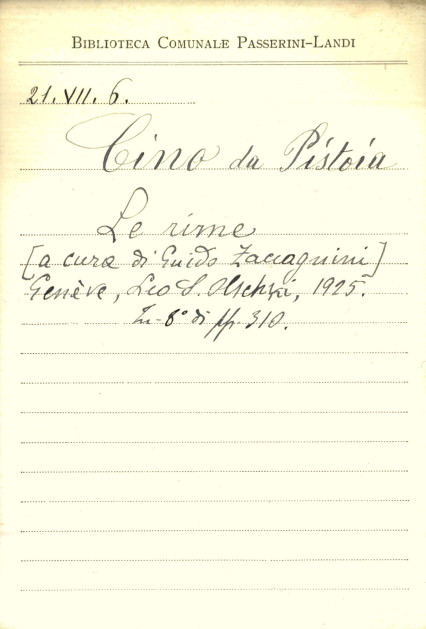 BIBLIOTECA COMUNALE PASSERINI-LANDI
21. VII. 6.
Cino da Pistoia
Le rime
[a cura di Guido Zaccagnini]
Genève, Leo S. Olschki, 1925.
In-8° di pp. 310.